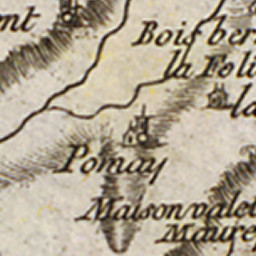 nt
Bois ber
la Foli
la
Pomay
Maison valet
Maurep